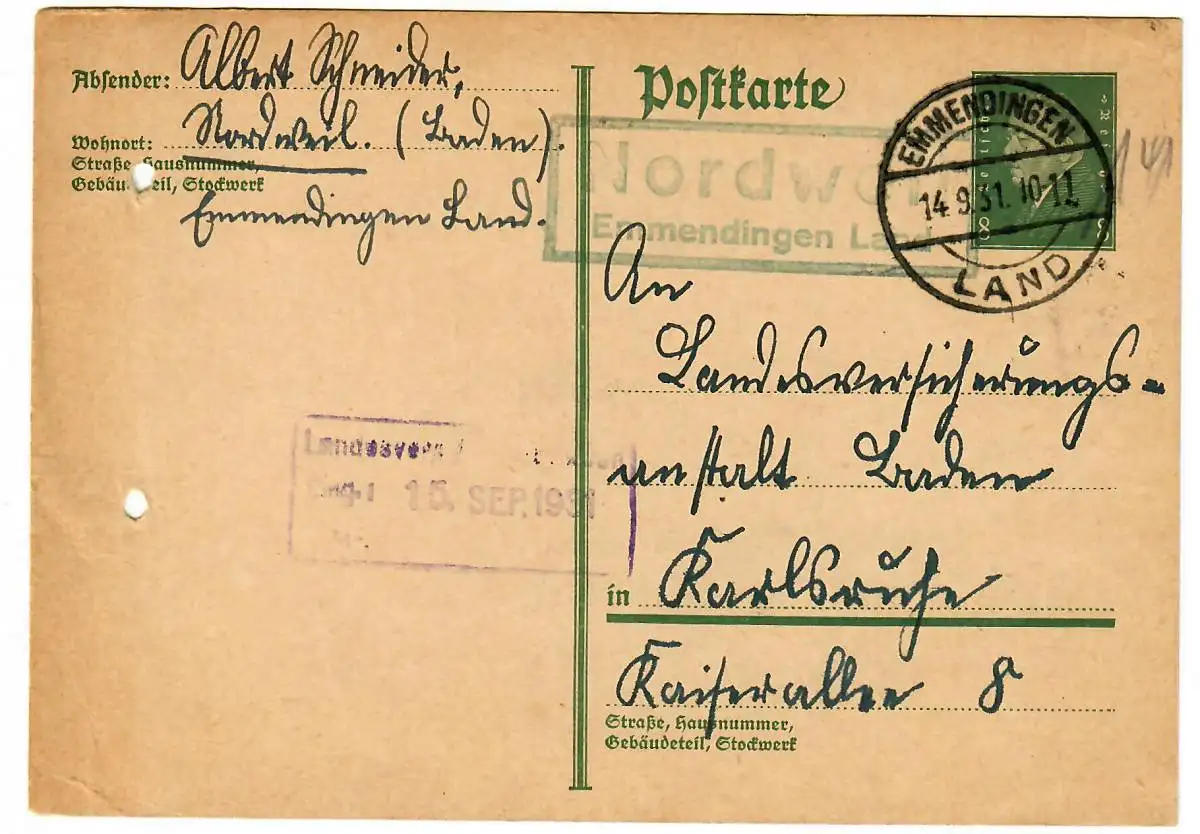 Absender: Albert Schneider,
Wohnort: Nordweil. (Baden).
Straße, Hausnummer,
Gebäudeteil, Stockwerk
Emmendingen Land.
Postkarte
Nordwei
Emmendingen Land
EMMENDINGEN
14.9.31.10-11
LAND
8 8
An
Landesversicherungs-
anstalt Baden
in Karlsruhe
Kaiserallee 8
Straße, Hausnummer,
Gebäudeteil, Stockwerk
Landesvers
Eing.: 15. SEP. 1931